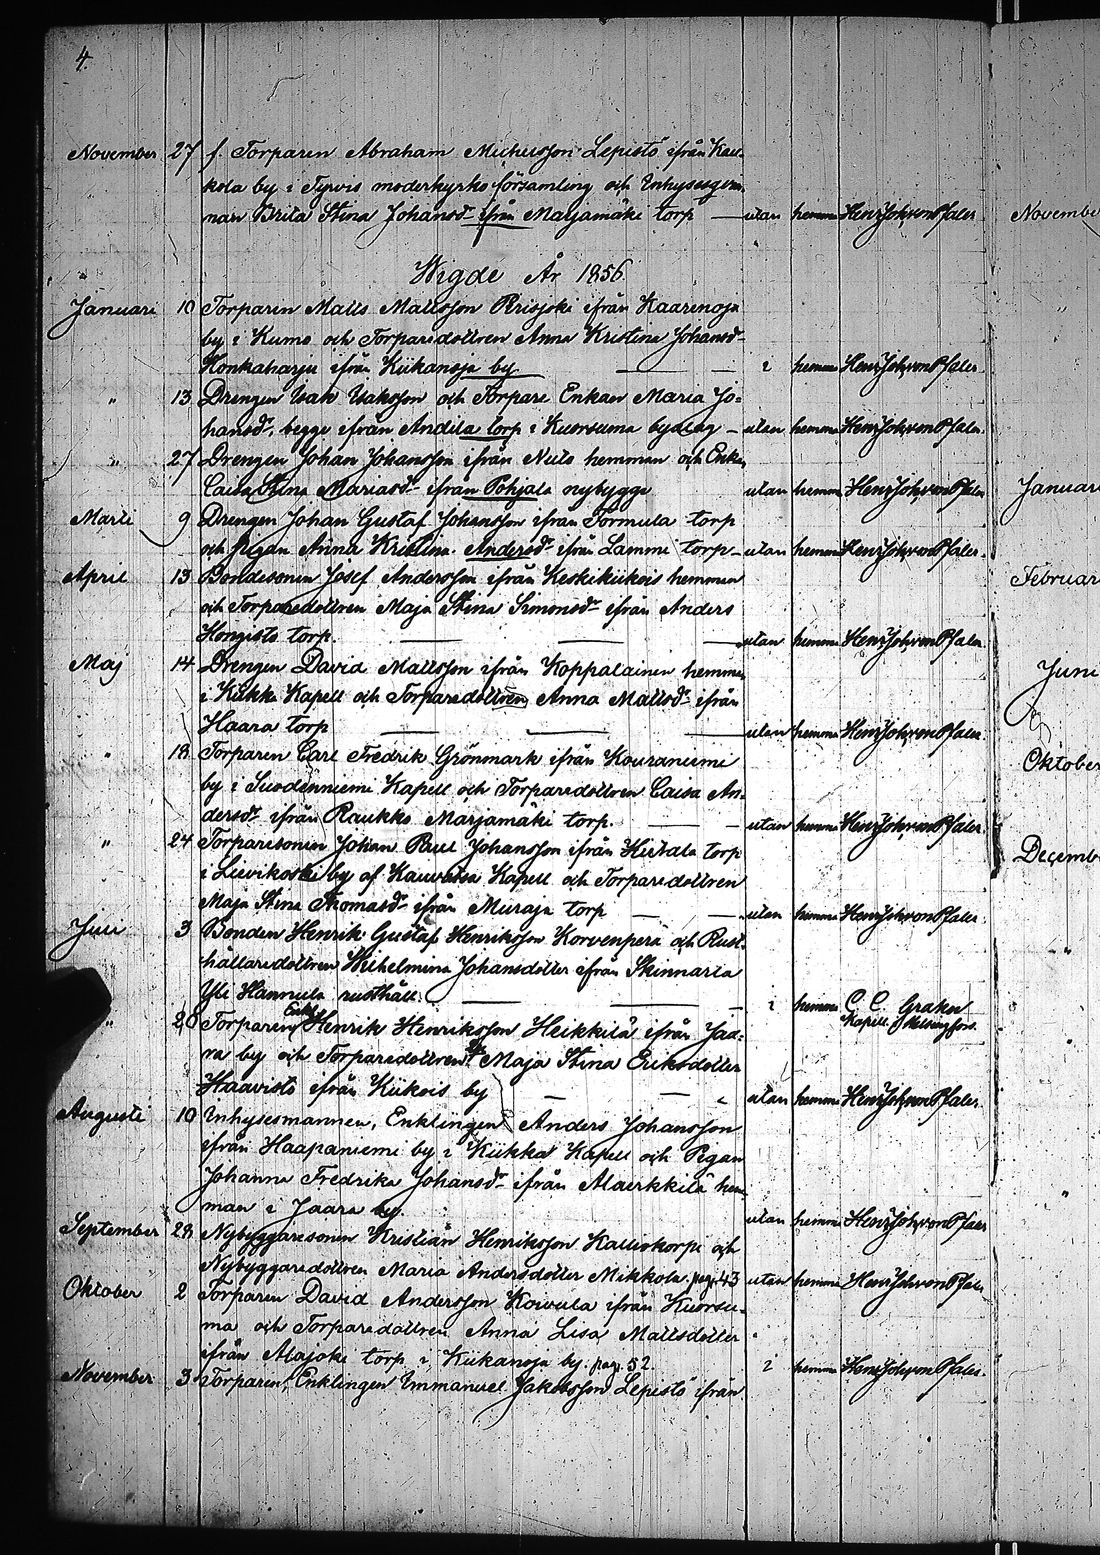 4.
November 27 f. Torparen Abraham Michelsson Lepistö ifrån Kau-
kola by i Tyrvis moderkyrko församling och Inhysesqvin-
nan Brita Stina Johansdr ifrån Marjamäki torp — utan hemma Henr Joh von Pfaler
Novembe
Wigde År 1856
Januari 10 Torparen Matts Mattsson Prisjoki ifrån Kaarenoja
by i Kumo och Torparedottren Anna Kristina Johansdr
Honkaharju ifrån Kiikanoja by — — i hemma Henr Joh von Pfaler
" 13 Drengen Isak Isaksson och Torpare Enkan Maria Jo-
hansdr, begge ifrån Andila torp i Kuorsuma bylag — utan hemma Henr Joh von Pfaler
" 27 Drengen Johan Johansson ifrån Nuto hemman och Enkan
Caisa Stina Mariasdr ifrån Pohjala nybygge utan hemma Henr Joh von Pfaler
Januari
Marti 9 Drengen Johan Gustaf Johansson ifrån Tormula torp
och pigan Anna Kristina Andersdr ifrån Lammi torp — utan hemma Henr Joh von Pfaler
April 13 Bondesonen Josef Andersson ifrån Keskikiikois hemman
Februari
och Torparedottren Maja Stina Simonsdr ifrån Anders
Hongisto torp. — — — utan hemma Henr Joh von Pfaler
Maj 14 Drengen David Mattsson ifrån Koppalainen hemman
Juni
i Kiikka Kapell och Torparedottren Anna Mattsdr ifrån
Haara torp — — — utan hemma Henr Joh von Pfaler
" 18 Torparen Carl Fredrik Grönmark ifrån Kouraniemi
Oktober
by i Suodenniemi Kapell och Torparedottren Caisa An-
dersdr ifrån Raukko Marjamäki torp. — — utan hemma Henr Joh von Pfaler
" 24 Torparesonen Johan Paul Johansson ifrån Hietala torp
Decemb
i Lievikoski by af Kauvatsa Kapell och Torparedottren
Maja Stina Thomasdr ifrån Muraja torp — — utan hemma Henr Joh von Pfaler
Juni 3 Bonden Henrik Gustaf Henriksson Korvenperä och Rust-
hållaredottren Wilhelmina Johansdotter ifrån Skinnarla
Yli Hannula rusthåll. — — — i hemma C. C. Graken
Kapell. Helsingfors.
" 28 Torparen Enkl Henrik Henriksson Heikkilä ifrån Jaa-
ra by och Torparedottren Maja Stina Eriksdotter
Haavisto ifrån Kiikois by — — utan hemma Henr Joh von Pfaler
Augusti 10 Inhysesmannen, Enklingen Anders Johansson
ifrån Haapaniemi by i Kiikka Kapell och Pigan
Johanna Fredrika Johansdr ifrån Alaerkkilä hem-
man i Jaara by. utan hemma Henr Joh von Pfaler
September 28 Nybyggaresonen Kristian Henriksson Kalliokorpi och
Nybyggaredottren Maria Andersdotter Mikkola. pag. 43 utan hemma Henr Joh von Pfaler
Oktober 2 Torparen David Andersson Koivula ifrån Kuorsu-
ma och Torparedottren Anna Lisa Mattsdotter
ifrån Alajoki torp i Kiikanoja by. pag. 52. i hemma Henr Joh von Pfaler
November 3 Torparen, Enklingen Immanuel Jakobsson Lepistö ifrån